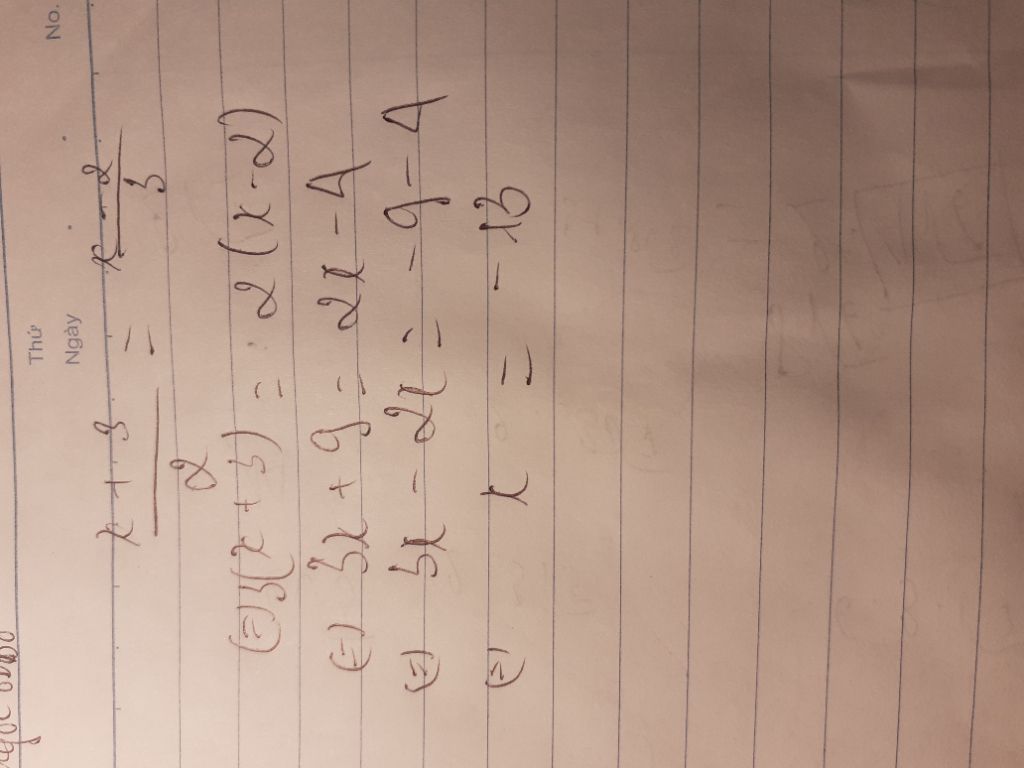 No.
Thứ
Ngày
x + 3 / 2 = x - 2 / 3
(=) 3(x + 3) = 2(x - 2)
(=) 3x + 9 = 2x - 4
(=) 3x - 2x = -9 - 4
(=) x = -13